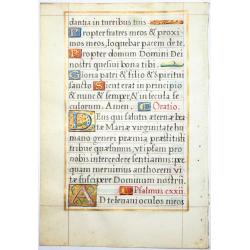 dantia in turribus tuis
Propter fratres meos & proxi
mos meos, loquebar pacem de te.
Propter domum Domini Dei
nostri quesivi bona tibi.
Gloria patri & filio & spiritui
sancto Sicut erat in principio
& nunc & semper, & in secula se
culorum. Amen. Oratio.
Deus qui salutis æternæ bea
tæ Mariæ virginitate fœcunda hu
mano generi præmia præstitisti
tribue quæsumus, vt ipsam pro
nobis intercedere sentiamus: per
quam meruimus authorem vi
tæ suscipere Dominum nostrū.
Psalmus cxxii.
AD te levavi oculos meos